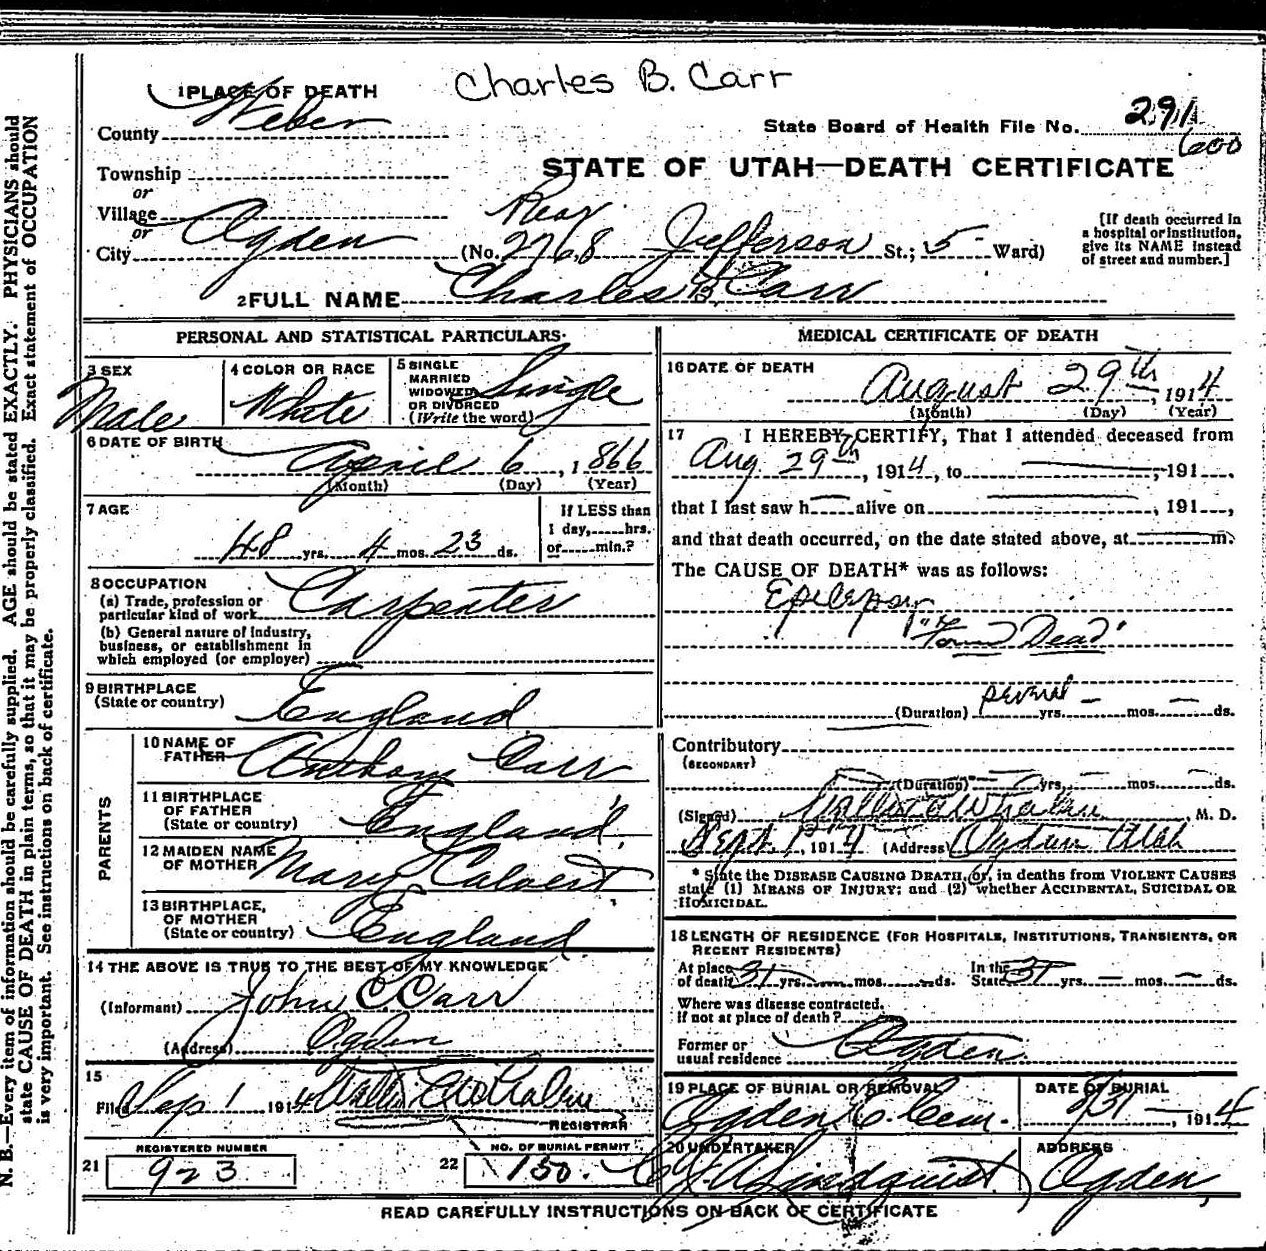 Charles B. Carr
1 PLACE OF DEATH
County Weber
State Board of Health File No. 291
600
STATE OF UTAH—DEATH CERTIFICATE
Township
or
Village
or
City Ogden
Rear
(No. 2768 Jefferson St.; 5 Ward)
[If death occurred in
a hospital or institution,
give its NAME instead
of street and number.]
2 FULL NAME Charles B. Carr
PERSONAL AND STATISTICAL PARTICULARS
3 SEX
Male
4 COLOR OR RACE
White
5 SINGLE
MARRIED
WIDOWED
OR DIVORCED
(Write the word)
Single
6 DATE OF BIRTH
April 6, 1866
(Month) (Day) (Year)
7 AGE
48 yrs. 4 mos. 23 ds.
If LESS than
1 day, hrs.
or min.?
8 OCCUPATION
(a) Trade, profession or
particular kind of work Carpenter
(b) General nature of industry,
business, or establishment in
which employed (or employer)
9 BIRTHPLACE
(State or country) England
PARENTS
10 NAME OF
FATHER Anthony Carr
11 BIRTHPLACE
OF FATHER
(State or country) England
12 MAIDEN NAME
OF MOTHER Mary Calvert
13 BIRTHPLACE,
OF MOTHER
(State or country) England
14 THE ABOVE IS TRUE TO THE BEST OF MY KNOWLEDGE
(Informant) John C Carr
(Address) Ogden
15
Filed Sep 1 1914 Walter E Whalen
REGISTRAR
REGISTERED NUMBER
21 923
NO. OF BURIAL PERMIT
22 150.
MEDICAL CERTIFICATE OF DEATH
16 DATE OF DEATH
August 29th, 1914
(Month) (Day) (Year)
17 I HEREBY CERTIFY, That I attended deceased from
Aug. 29th, 1914, to , 191 ,
that I last saw h alive on , 191 ,
and that death occurred, on the date stated above, at m.
The CAUSE OF DEATH* was as follows:
Epilepsy
"Found Dead"
(Duration) several yrs. — mos. — ds.
Contributory
(SECONDARY)
(Duration) — yrs. — mos. — ds.
(Signed) Walter E Whalen, M. D.
Sept. 1, 1914 (Address) Ogden Utah
* State the DISEASE CAUSING DEATH, or, in deaths from VIOLENT CAUSES
state (1) MEANS OF INJURY; and (2) whether ACCIDENTAL, SUICIDAL OR
HOMICIDAL.
18 LENGTH OF RESIDENCE (FOR HOSPITALS, INSTITUTIONS, TRANSIENTS, OR
RECENT RESIDENTS)
At place
of death 31 yrs. — mos. — ds.
In the
State 31 yrs. — mos. — ds.
Where was disease contracted,
if not at place of death?
Former or
usual residence Ogden
19 PLACE OF BURIAL OR REMOVAL
Ogden C. Cem.
DATE OF BURIAL
8/31, 1914
20 UNDERTAKER
Lindquist
ADDRESS
Ogden,
READ CAREFULLY INSTRUCTIONS ON BACK OF CERTIFICATE
N. B.—Every item of information should be carefully supplied. AGE should be stated EXACTLY. PHYSICIANS should
state CAUSE OF DEATH in plain terms, so that it may be properly classified. Exact statement of OCCUPATION
is very important. See instructions on back of certificate.